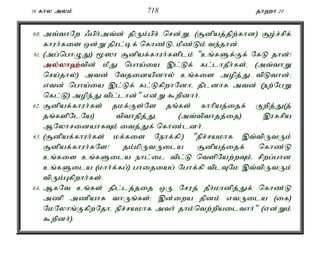 16 கால அலம்
718
தாஹா 20
60. அவ்வாறே ஃபிர்அவ்ன் திரும்பிச் சென்று, (சூனியத்திற்கான) சூழ்ச்சிக்
காரர்களை ஒன்று திரட்டிக் கொண்டு, மீண்டும் வந்தான்.
61. (அப்பொழுது) மூஸா சூனியக்காரர்களிடம் "உங்களுக்குக் கேடு தான்!
அல்லாஹ்வின் மீது பொய்யை இட்டுக் கட்டாதீர்கள், (அவ்வாறு
செய்தால்) அவன் வேதனையினால் உங்களை அழித்து விடுவான்;
எவன் பொய்யை இட்டுக் கட்டுகிறானோ, திடனாக அவன் (நற்பேறு
கெட்டு) அழிந்து விட்டான்" என்று கூறினார்.
62. சூனியக்காரர்கள் தமக்குள்ளே தங்கள் காரியத்தைக் குறித்து(த்
தங்களிடையே) விவாதித்து, (அவ்விவாதத்தை) இரகசிய
ஆலோசனையாகவும் வைத்துக் கொண்டனர்.
63. (சூனியக்காரர்கள் மக்களை நோக்கி:) "நிச்சயமாக இவ்விருவரும்
சூனியக்காரர்களே! தம்மிருவருடைய சூனியத்தைக் கொண்டு
உங்களை உங்களுடைய நாட்டை விட்டு வெளியேற்றவும், சிறப்பான
உங்களுடைய (மார்க்கப்) பாதையைப் போக்கி விடவுமே இவ்விருவரும்
விரும்புகிறார்கள்.
64. ஆகவே உங்கள் திட்டத்ததை ஒரு சேரத் தீர்மானித்துக் கொண்டு
அணி அணியாக வாருங்கள்; இன்றைய தினம் எவருடைய (கை)
மேலோங்குகிறதோ, நிச்சயமாக அவர் தாம்வெற்றியடைவார்" (என்றும்
கூறினர்).